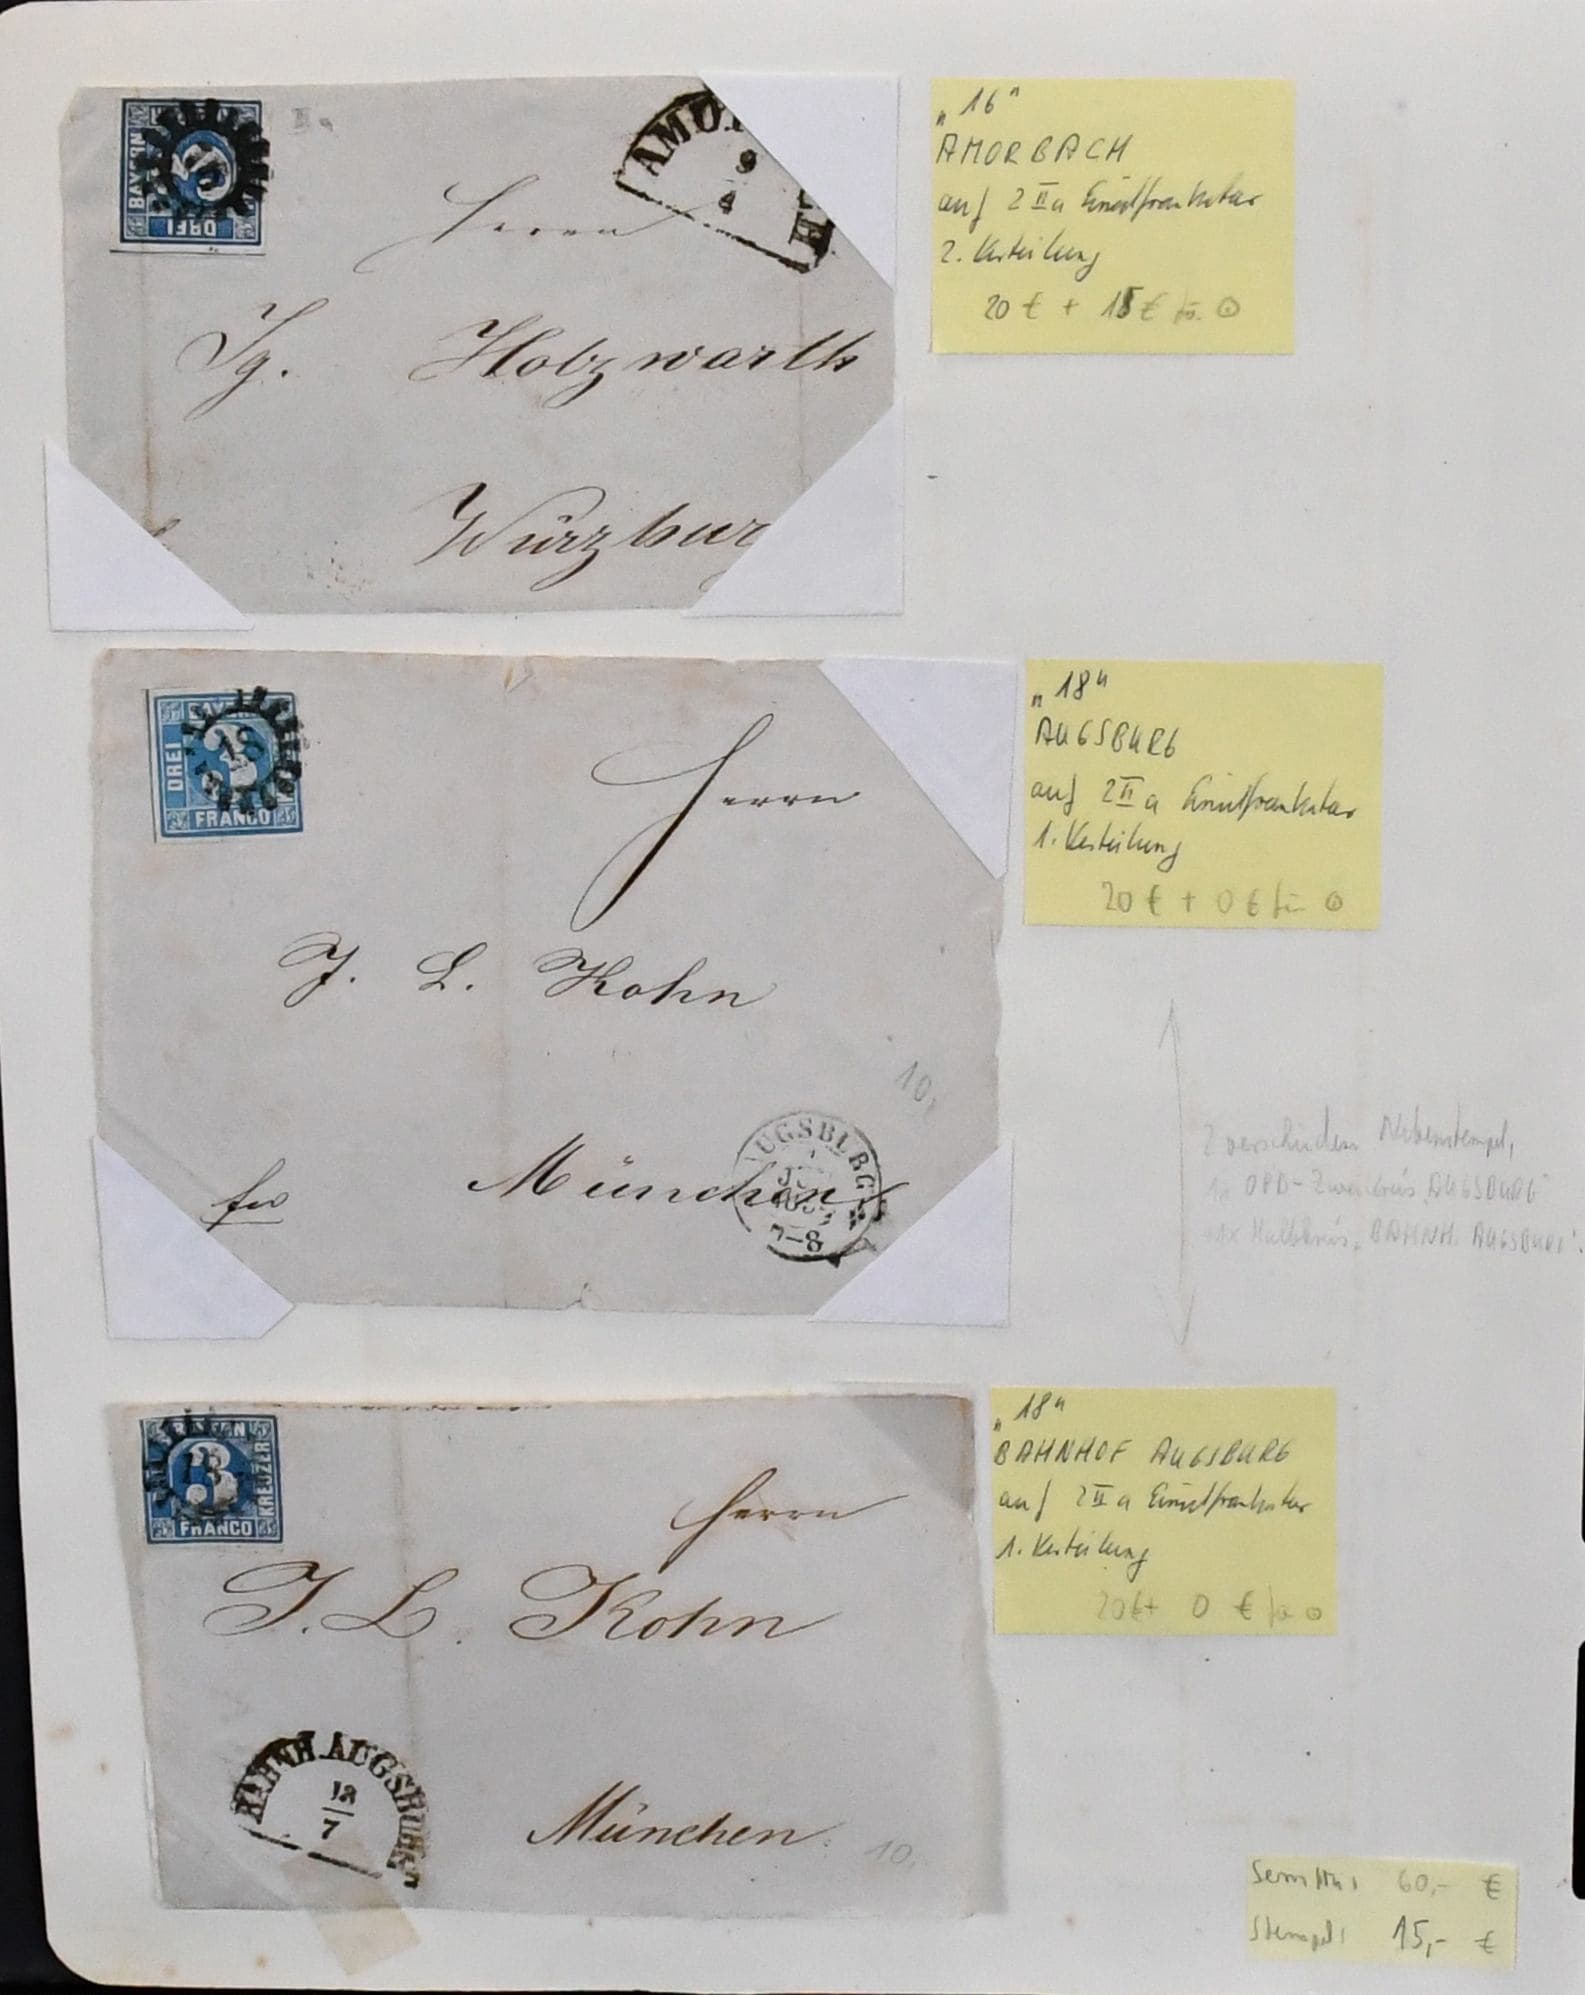 BAYERN
DREI
AMO
9
4
CH
Herrn
Jg. Holzwarth
Würzbur
„16"
AMORBACH
auf 2 II a Einzelfrankatur
2. Verteilung
20 € + 15 € für ⊙
DREI
18
3
FRANCO
Herrn
J. L. Kohn
10,
München
fro
UGSBURG
7-8
„18"
AUGSBURG
auf 2 II a Einzelfrankatur
1. Verteilung
20 € + 0 € für ⊙
2 verschiedene Nebenstempel,
1x OPD-Zweikreis „AUGSBURG"
1x Halbkreis „BAHNH. AUGSBURG".
3
KREUZER
FRANCO
Herrn
J. L. Kohn
BAHNH. AUGSBURG
12
7
München.
10,
„18"
BAHNHOF AUGSBURG
auf 2 II a Einzelfrankatur
1. Verteilung
20 € + 0 € für ⊙
60,- €
Stempel: 15,- €